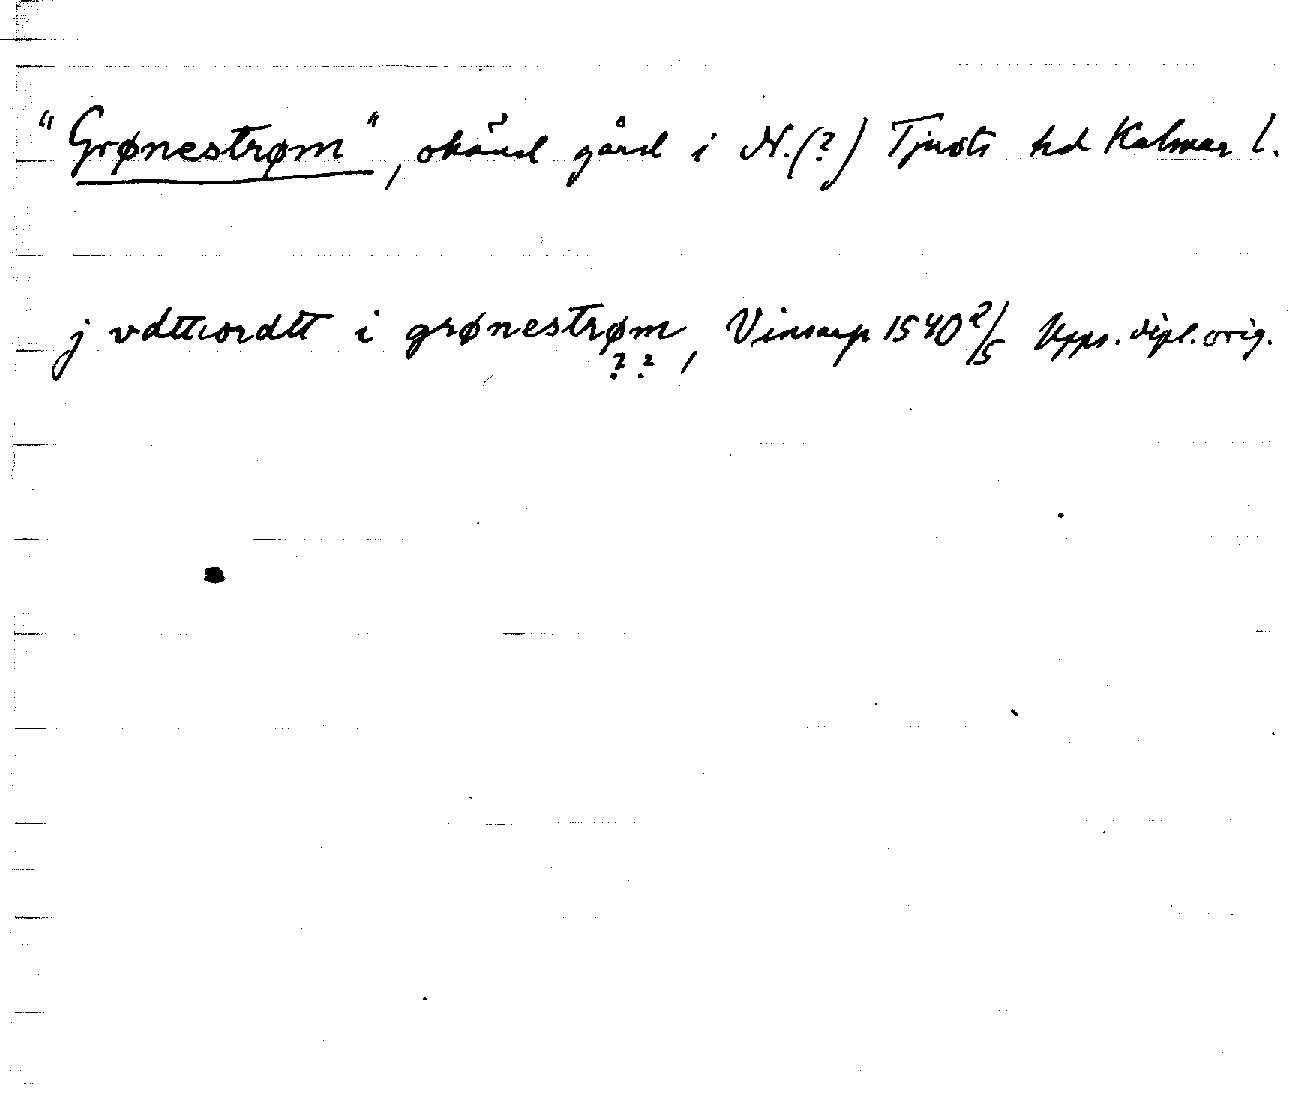 "Grønestrøm", okänd gård i N.(?) Tjusts hd Kalmar l.
j vdttiordtt i grønestrøm, Vinsarp 1540 2/5 Upps. dipl. orig.
? ?